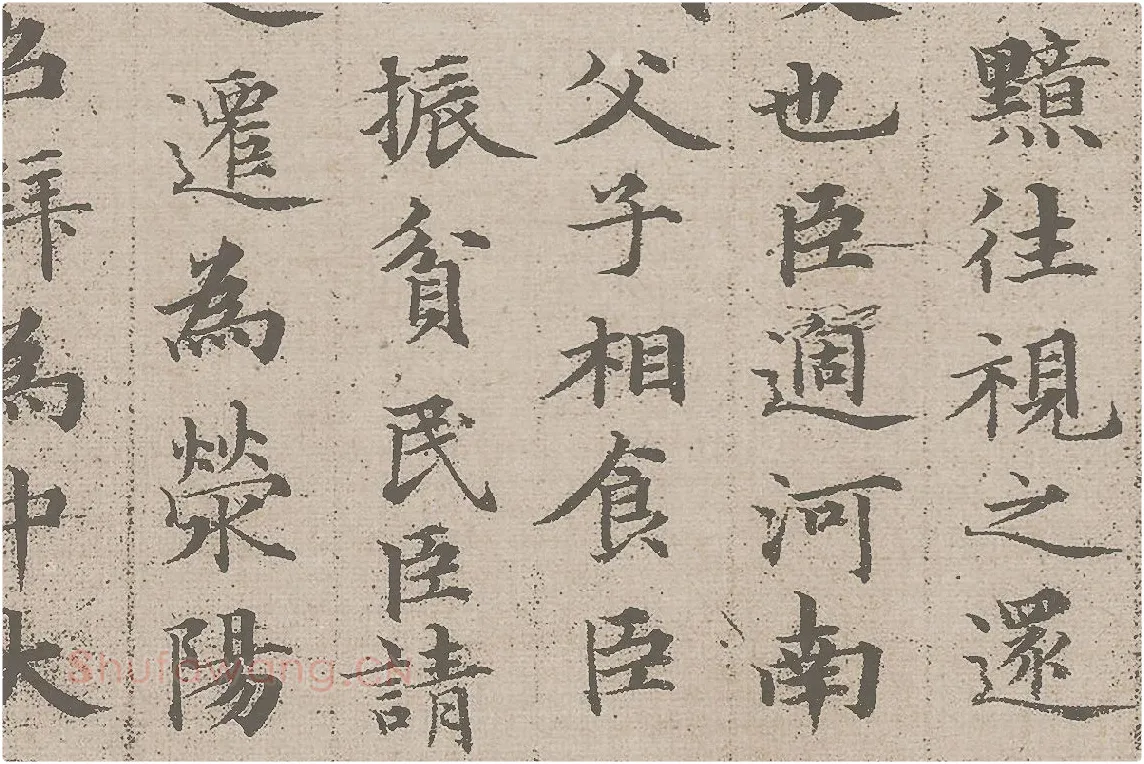 黯往視之還
也臣適河南
父子相食臣
振貧民臣請
遷為滎陽
召拜為中大
Shufawang.CN